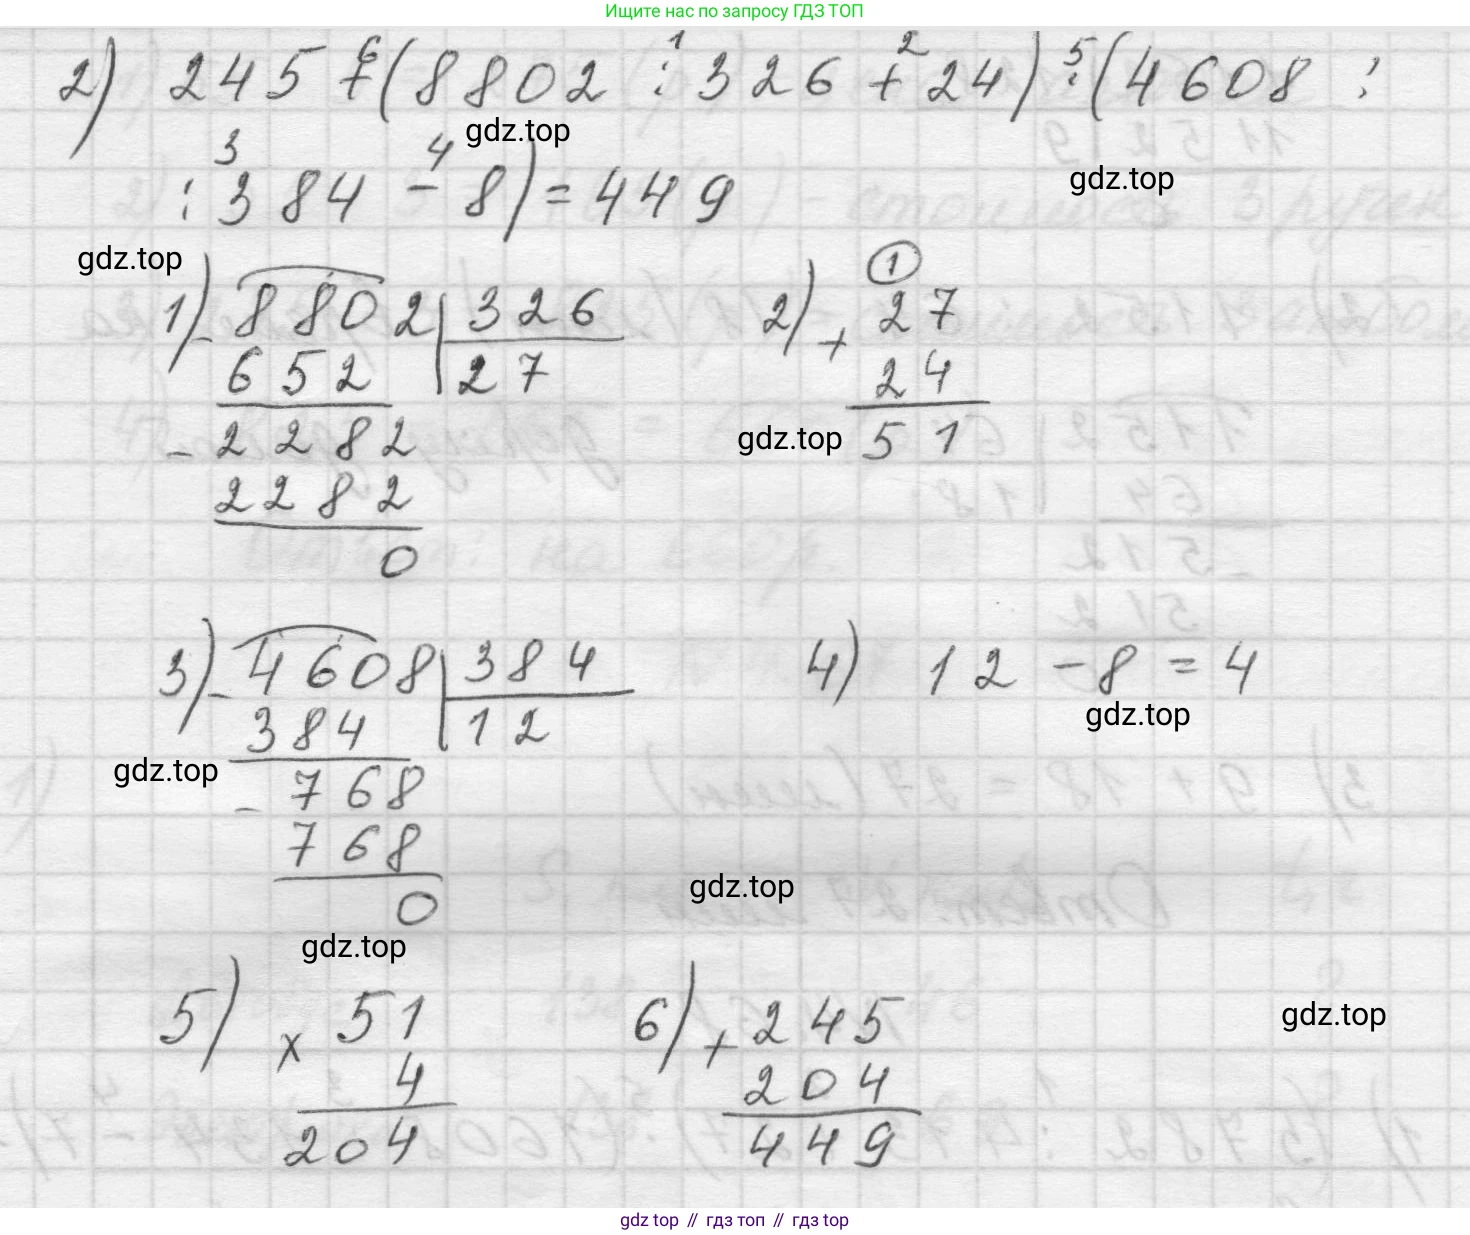 Ищите нас по запросу ГДЗ ТОП
2) 245 + (8802 : 326 + 24) : (4608 :
6 1 2 5
gdz.top
gdz.top
: 384 - 8) = 449
3 4
gdz.top
1) - 8802 | 326
652 | 27
- 2282
2282
0
2) + 27
1
24
gdz.top
51
3) - 4608 | 384
384 | 12
gdz.top
- 768
768
0
4) 12 - 8 = 4
gdz.top
gdz.top
gdz.top
5) × 51
4
204
6) + 245
204
449
gdz.top
gdz top // гдз топ // гдз top